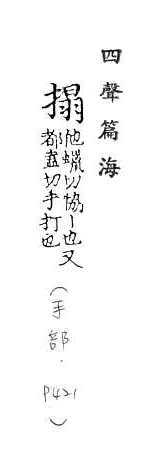 四聲篇海
搨
他蠟切協丨也又
都盍切手打也
(手部．P421)